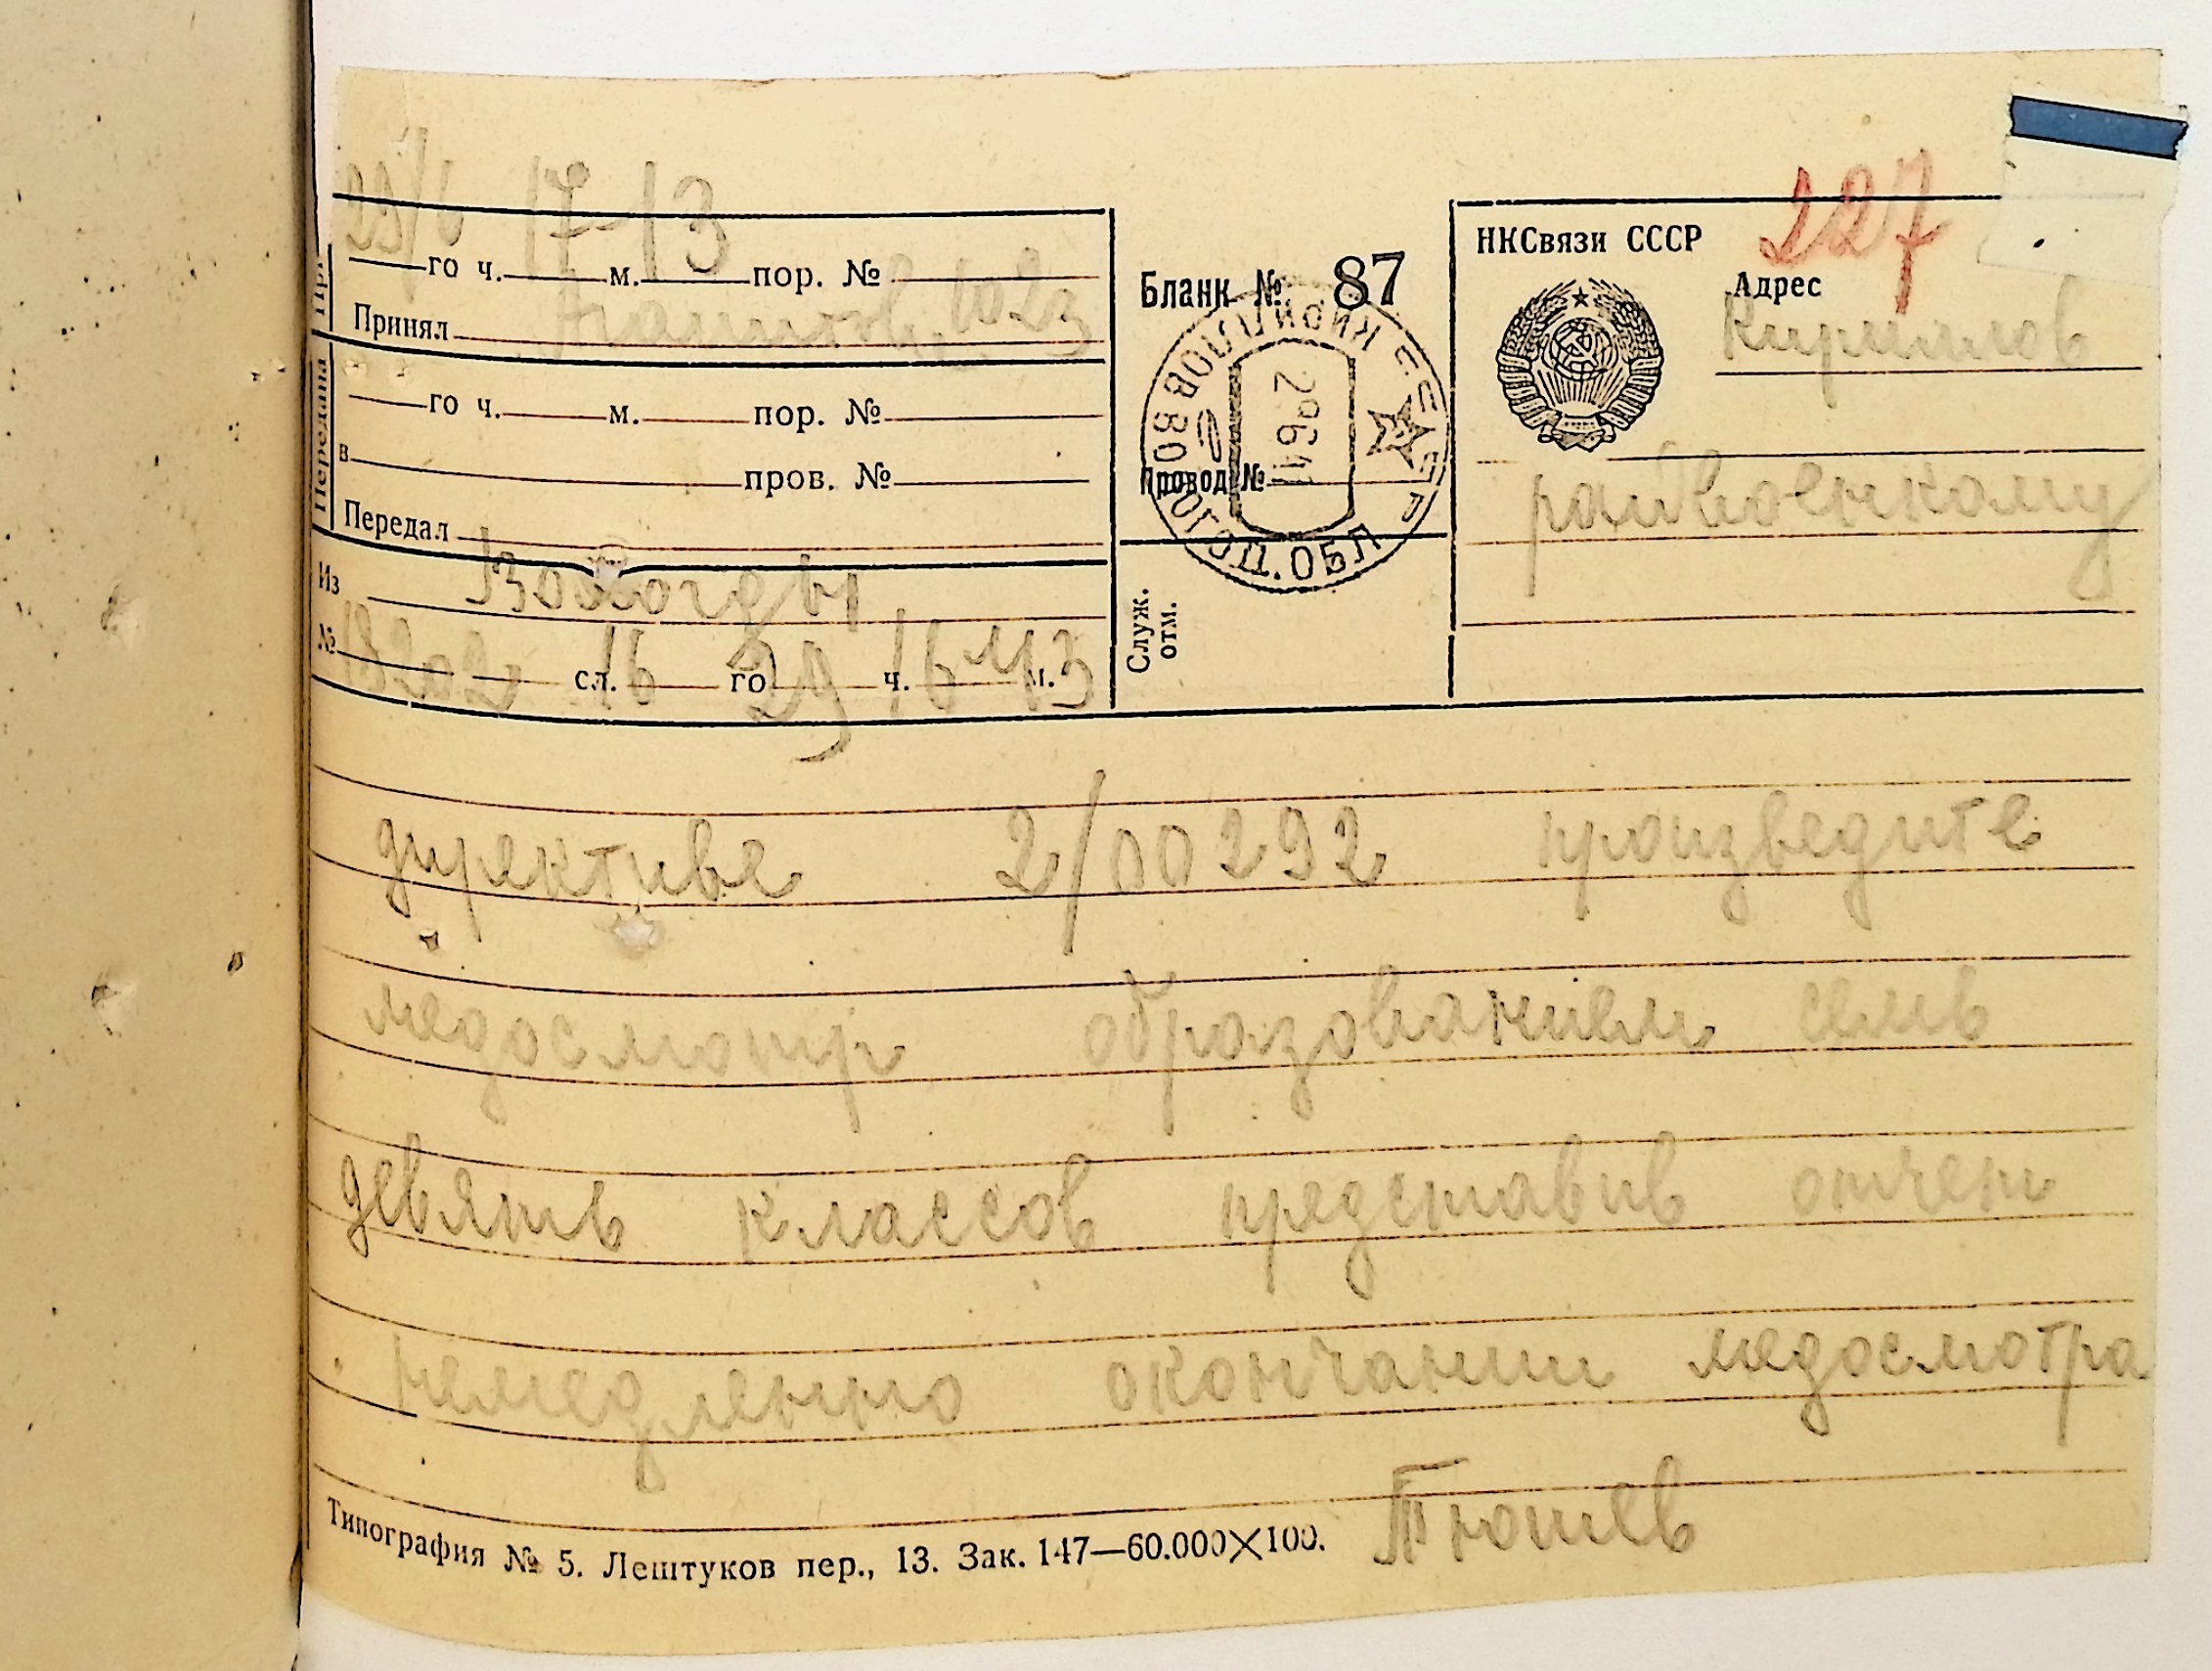 227
29/6 17-13
го ч. м. пор. №
Принял 1023
Передана
го ч. м. пор. №
в пров. №
Передал
Из Вологды
№ 18202 сл. 16 го 29 ч. 16 м. 43
Бланк № 87
Провод №
Служ. отм.
КИРИЛЛОВ ВОЛОГОД. ОБЛ
29 6 41
НКСвязи СССР
Адрес
Кириллов
райвоенкому
директиве 2/00292 произведите
медосмотр образованием семь
девять классов представив отчет
немедленно окончании медосмотра
Тюшев
Типография № 5. Лештуков пер., 13. Зак. 147—60.000×100.